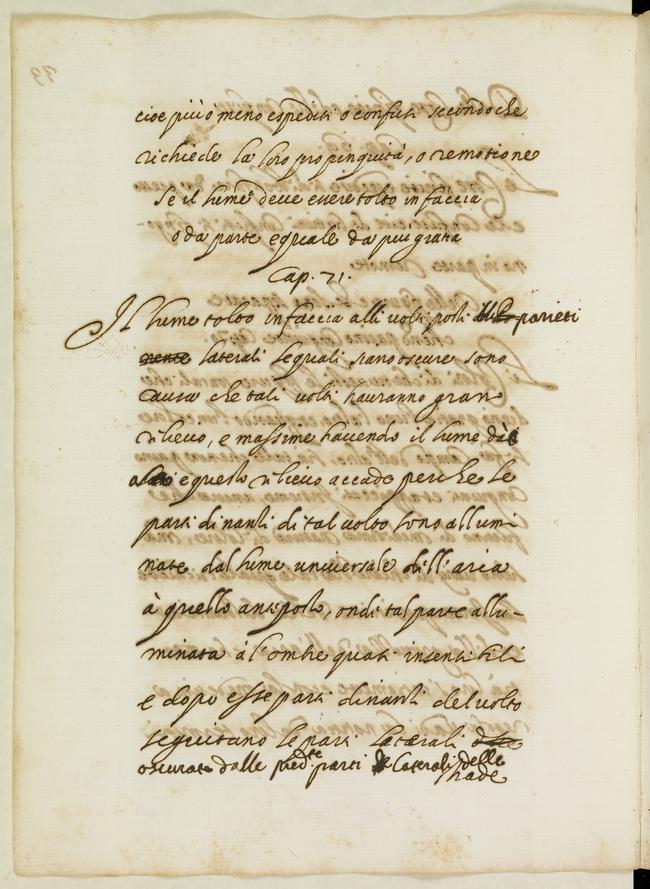 cioe più o meno espediti o confusi secondo che
richiede la loro propinquità, o remotione
Se il lume deve essere tolto in faccia
o da parte e quale da piu gratia
Cap. 71.
Il lume tolto in faccia alli volti posti parieti
laterali le quali siano oscure sono
causa che tali volti hauranno gran
rilievo, e massime havendo il lume da
alto e questo rilievo accade perche le
parti dinanti di tal volto sono allumi
nate dal lume universale dell'aria
à quello antiposto, onde tal parte allu-
minata à l'ombre quasi insensibili
e dopo esse parti dinanti del volto
seguitano le parti laterali
oscurate dalle pred.te parti laterali delle
strade